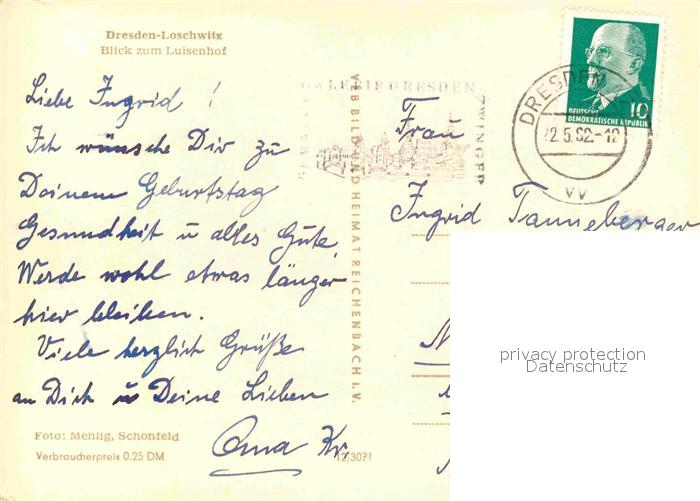 Dresden-Loschwitz
Blick zum Luisenhof
Liebe Ingrid !
Ich wünsche Dir zu
Deinem Geburtstag
Gesundheit u alles Gute,
Werde wohl etwas länger
hier bleiben.
Viele herzlich Grüße
an Dich u Deine Lieben
Oma Kr.
Foto: Mehlig, Schönfeld
Verbraucherpreis 0.25 DM
12/3071
VEB BILD UND HEIMAT REICHENBACH I. V.
GALERIE DRESDEN
ZWINGER
DRESDEN
22.5.62.-12
VV
10
DEUTSCHE
DEMOKRATISCHE REPUBLIK
Frau
Ingrid Tanneberger
privacy protection
Datenschutz